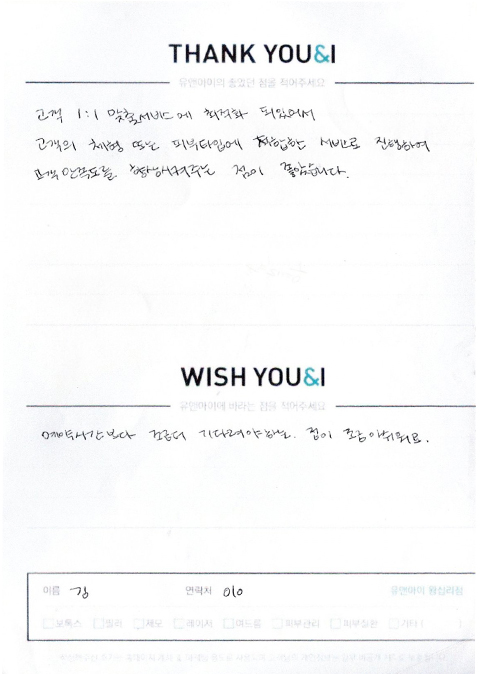 THANK YOU&I
유앤아이의 좋았던 점을 적어주세요
고객 1:1 맞춤서비스에 최적화 되있어서
고객의 체형 또는 피부타입에 적합한 서비로 진행하여
고객만족도를 향상시켜주는 점이 좋았습니다.
WISH YOU&I
유앤아이에 바라는 점을 적어주세요
예약시간보다 조금더 기다려야하는. 점이 조금아쉬워요.
이름 김 연락처 010 유앤아이 왕십리점
보톡스 필러 제모 레이저 여드름 피부관리 피부질환 기타 ( )